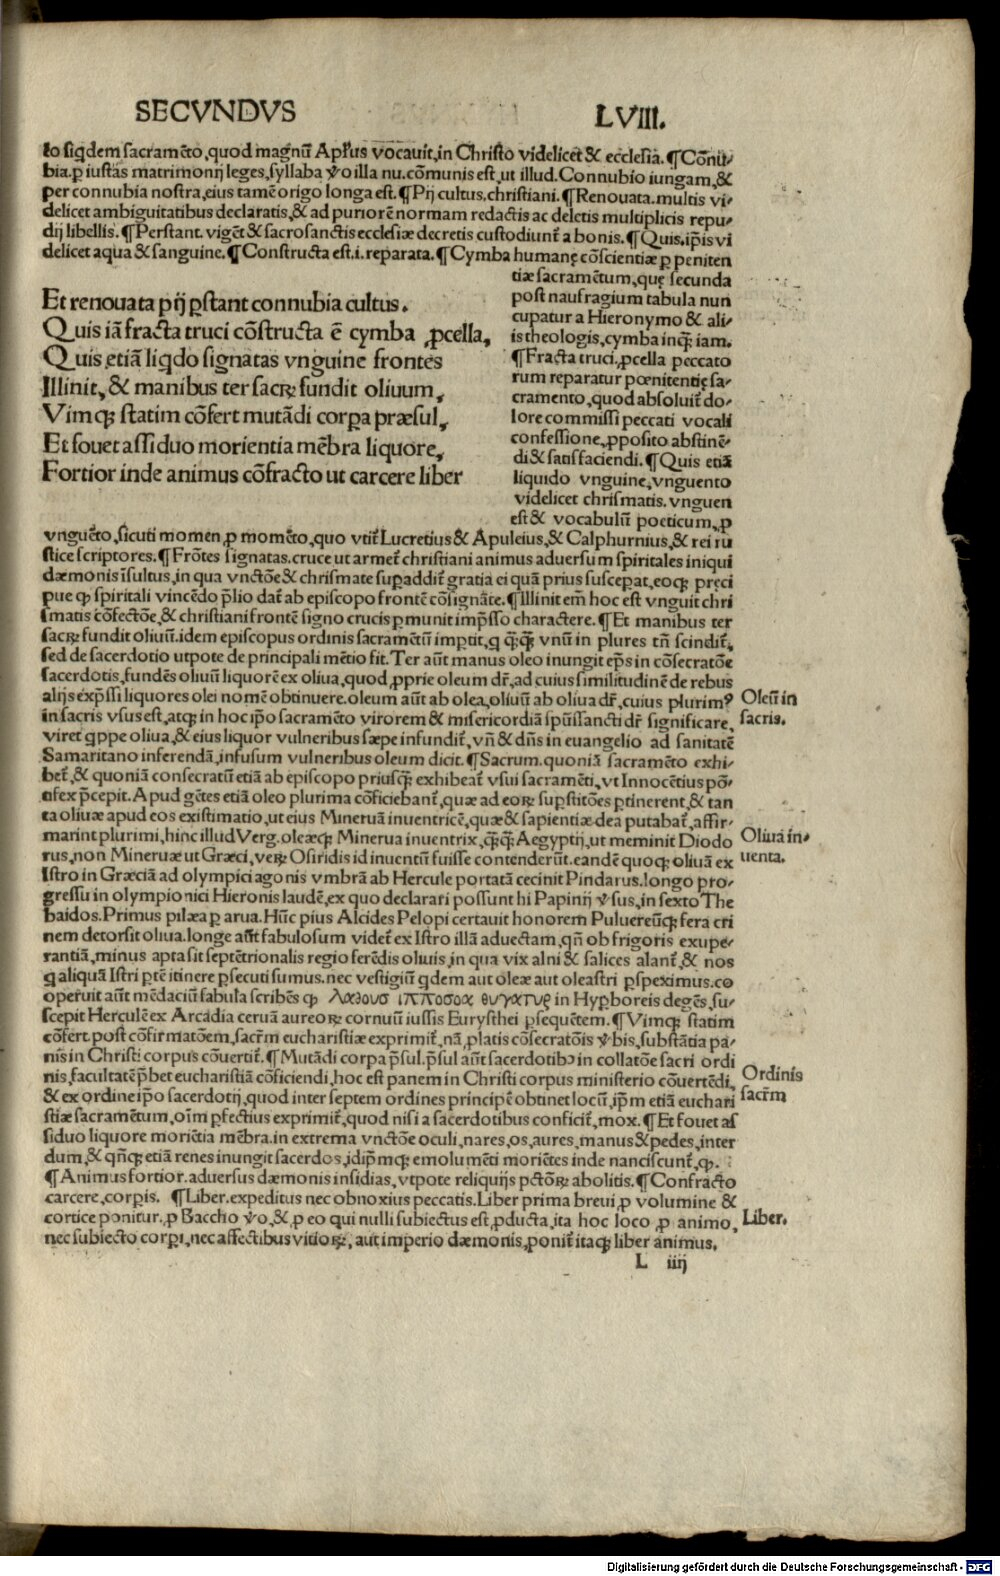 SECVNDVS LVIII.
lo siqdem sacramēto, quod magnū Apl'us vocauit, in Christo videlicet & ecclesia. ¶ Cōnu-
bia. ꝑ iustas matrimonij leges, syllaba ꝟo illa nu. cōmunis est, ut illud. Connubio iungam, &
per connubia nostra, eius tamē origo longa est. ¶ Pij cultus. christiani. ¶ Renouata. multis vi-
delicet ambiguitatibus declaratis, & ad puriorē normam redactis ac deletis multiplicis repu-
dij libellis. ¶ Perstant. vigēt & sacrosanctis ecclesiæ decretis custodiunt̄ a bonis. ¶ Quis. ip̄is vi
delicet aqua & sanguine. ¶ Constructa est. i. reparata. ¶ Cymba humanę cōscientiæ ꝑ peniten
tiæ sacramētum, quę secunda
post naufragium tabula nun
cupatur a Hieronymo & ali-
is theologis, cymba inq̄ iam.
¶ Fracta truci, ꝓcella peccato
rum reparatur pœnitentię sa-
cramento, quod absoluit̄ do-
lore commissi peccati vocali
confessione, ꝓposito abstinē-
di & satisfaciendi. ¶ Quis etiā
liquido vnguine, vnguento
videlicet chrismatis. vnguen
est & vocabulū poeticum, ꝓ
Et renouata pij ꝑstant connubia cultus.
Quis iā fracta truci cōstructa ē cymba ꝓcella,
Quis etiā liqdo signatas vnguine frontes
Illinit, & manibus ter sacrꝝ fundit oliuum,
Vimqꝫ statim cōfert mutādi corpa præsul,
Et fouet assiduo morientia mēbra liquore,
Fortior inde animus cōfracto ut carcere liber
vnguēto, sicuti momen ꝓ momēto, quo vtit̄ Lucretius & Apuleius, & Calphurnius, & rei ru
sticę scriptores. ¶ Frōtes signatas. cruce ut armet̄ christiani animus aduersum spiritales iniqui
dæmonis īsultus, in qua vnctōe & chrismate supaddit̄ gratia ei quā prius suscepat, eoqꝫ pręci
pue ꝙ spiritali vincēdo p̄lio dat̄ ab episcopo frontē cōsignāte. ¶ Illinit em̄ hoc est vnguit chri
smatis cōfectōe, & christiani frontē signo crucis ꝑmunit imp̄sso charactere. ¶ Et manibus ter
sacrꝝ fundit oliuū. idem episcopus ordinis sacramētū imptit, q q̄q̄ vnū in plures tn̄ scindit̄,
sed de sacerdotio utpote de principali mētio fit. Ter aūt manus oleo inungit ep̄s in cōsecratōe
sacerdotis, fundēs oliuū liquorē ex oliua, quod ꝓprie oleum dr̄, ad cuius similitudinē de rebus
alijs exp̄ssi liquores olei nomē obtinuere. oleum aūt ab olea, oliuū ab oliua dr̄, cuius plurimꝰ
in sacris vsus est, atqꝫ in hoc ip̄o sacramēto virorem & misericordiā sp̄ussancti dr̄ significare,
viret qppe oliua, & eius liquor vulneribus sæpe infundit̄, vn̄ & dn̄s in euangelio ad sanitatē
Samaritano inferendā, infusum vulneribus oleum dicit. ¶ Sacrum. quoniā sacramēto exhi-
bet̄, & quoniā consecratū etiā ab episcopo priusq̄ exhibeat̄ vsui sacramēti, vt Innocētius pō-
tifex p̄cepit. Apud gētes etiā oleo plurima cōficiebant̄, quæ ad eorꝝ suꝑstitōes ꝑtinerent, & tan
ta oliuæ apud eos existimatio, ut eius Mineruā inuentricē, quæ & sapientiæ dea putabat̄, affir-
marint plurimi, hinc illud Verg. oleæqꝫ Minerua inuentrix, q̄q̄ Aegyptij, ut meminit Diodo
rus, non Mineruæ ut Græci, verꝝ Osiridis id inuentū fuisse contenderūt. eandē quoqꝫ oliuā ex
Istro in Græciā ad olympici agonis vmbrā ab Hercule portatā cecinit Pindarus. longo pro-
gressu in olympionici Hieronis laudē, ex quo declarari possunt hi Papinij ꝟsus, in sexto The
baidos. Primus pilæa ꝑ arua. Hūc pius Alcides Pelopi certauit honorem Puluereūqꝫ fera cri
nem detorsit oliua. longe aūt fabulosum videt̄ ex Istro illā aduectam, qn̄ ob frigoris exupe-
rantiā, minus apta sit septētrionalis regio ferēdis oliuis, in qua vix alni & salices alant̄, & nos
q aliquā Istri ꝑtē itinere ꝑsecuti sumus. nec vestigiū qdem aut oleæ aut oleastri ꝑspeximus. co
operuit aūt mēdaciū fabula scribēs ꝙ λαθουσ ιπποσοα θυγατυρ in Hyꝑboreis degēs, su-
scepit Herculē ex Arcadia ceruā aureorꝝ cornuū iussis Eurysthei ꝑsequētem. ¶ Vimqꝫ statim
cōfert. post cōfirmatōem, sacr̄m eucharistiæ exprimit̄, nā ꝓlatis cōsecratōis ꝟbis, substātia pa-
nis in Christi corpus cōuertit̄. ¶ Mutādi corpa p̄sul. p̄sul aūt sacerdotibꝰ in collatōe sacri ordi
nis, facultatē p̄bet eucharistiā cōficiendi, hoc est panem in Christi corpus ministerio cōuertēdi,
& ex ordine ip̄o sacerdotij, quod inter septem ordines principē obtinet locū, ip̄m etiā euchari
stiæ sacramētum, oīm ꝑfectius exprimit̄, quod nisi a sacerdotibus conficit̄, mox. ¶ Et fouet as
siduo liquore moriētia mēbra. in extrema vnctōe oculi, nares, os, aures, manus & pedes, inter
dum, & qn̄qꝫ etiā renes inungit sacerdos, idip̄mqꝫ emolumēti moriētes inde nanciscunt̄, ꝙ.
¶ Animus fortior. aduersus dæmonis insidias, vtpote reliquijs pctōrꝝ abolitis. ¶ Confracto
carcere, corꝑis. ¶ Liber. expeditus nec obnoxius peccatis. Liber prima breui ꝓ volumine &
cortice ponitur, ꝓ Baccho ꝟo, & ꝓ eo qui nulli subiectus est, ꝓducta, ita hoc loco ꝓ animo,
nec subiecto corꝑi, nec affectibus vitiorꝝ, aut imperio dæmonis, ponit̄ itaqꝫ liber animus.
Oleū in
sacris.
Oliua in-
uenta.
Ordinis
sacr̄m
Liber.
L iiij
Digitalisierung gefördert durch die Deutsche Forschungsgemeinschaft - DFG